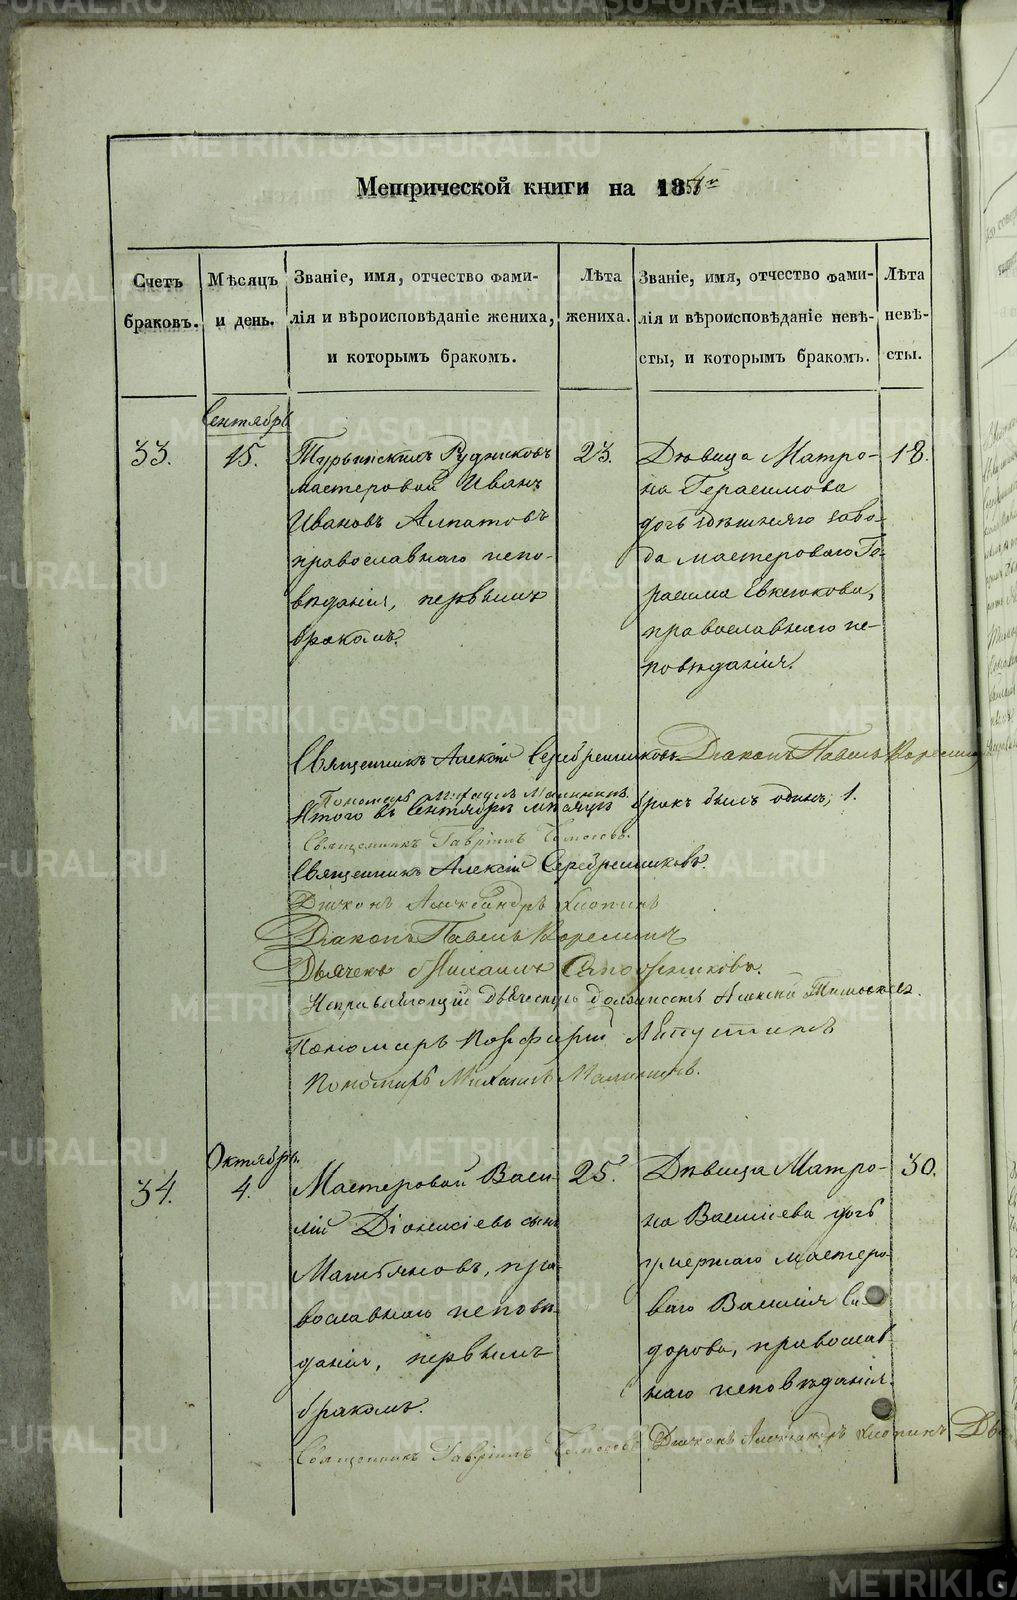 Метрической книги на 185
Счетъ браковъ.
Мѣсяцъ и день.
Званіе, имя, отчество фами-
лія и вѣроисповѣданіе жениха,
и которымъ бракомъ.
Лѣта жениха.
Званіе, имя, отчество фами-
лія и вѣроисповѣданіе невѣ-
сты, и которымъ бракомъ.
Лѣта невѣ-
сты.
Сентябрь
33.
15.
Турьинскихъ Рудниковъ
мастеровой Иванъ
Ивановъ Алпатовъ
православнаго испо-
вѣданія, первымъ
бракомъ.
23.
Дѣвица Матро-
на Герасимова
дочь здѣшняго заво-
да мастероваго Ге-
расима Евсюкова,
православнаго ис-
повѣданія.
18.
Священникъ Алексій Серебренниковъ Діаконъ Павелъ
Пономарь Михаилъ Малининъ.
Итого въ Сентябрѣ мѣсяцѣ бракъ былъ одинъ, 1.
Священникъ Гавріилъ
Священникъ Алексій Серебренниковъ.
Діаконъ Александръ Хлопинъ
Діаконъ Павелъ
Дьячекъ Михаилъ Сапожниковъ.
Исправляющій дьяческую должность Алексій
Пономарь Порфирій Лепустинъ
Пономарь Михаилъ Малининъ.
Октябрь.
34.
4.
Мастеровой Васи-
лій Діонисіевъ сынъ
пра-
вославнаго исповѣ-
данія, первымъ
бракомъ.
25.
Дѣвица Матро-
на Василіева дочь
умершаго мастеро-
ваго Василія Си-
дорова, православ-
наго исповѣданія.
30.
Священникъ Гавріилъ Діаконъ Александръ Хлопинъ
METRIKI.GASO-URAL.RU